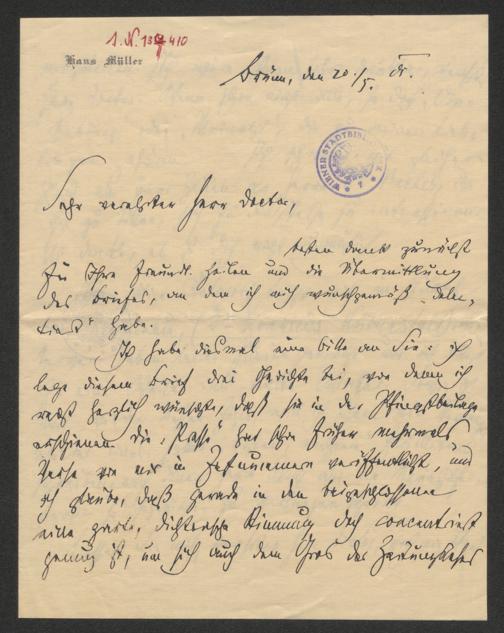 I. N. 137410
Hans Müller
Brünn, den 20./5.
WIENER STADTBIB
Sehr verehrter Herr Doctor,
besten Dank zunächst
für Ihre freundl. Zeilen und die Übermittlung
des Briefes, an dem ich mich wunschgemäß „delec-
tiert“ habe.
Ich habe diesmal eine Bitte an Sie: ich
lege diesem Brief drei Gedichte bei, von denen ich
recht herzlich wünschte, daß sie in der Pfingstbeilage
erschienen. Die „Presse“ hat schon früher mehrmals
Verse von mir in veröffentlicht, und
ich glaube, daß gerade in den beigeschlossenen
eine zarte, dichterische Stimmung doch concentriert
genug ist, um sich auch dem Gros der Zeitungsleser